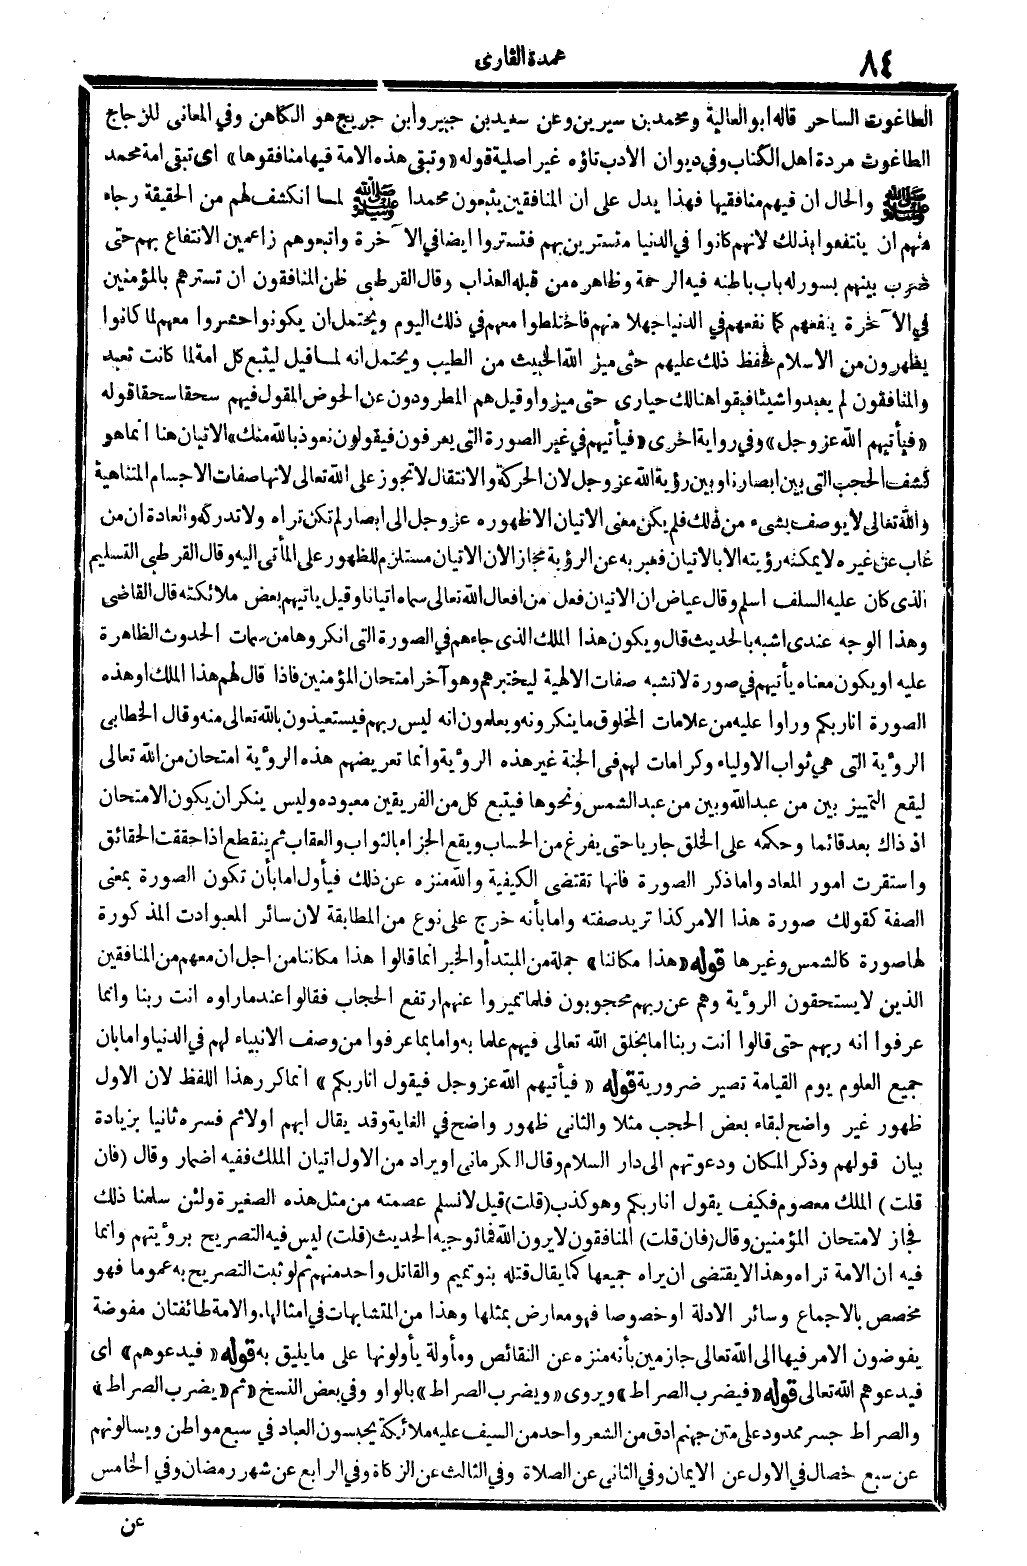 ٨٤
عمدة القارى
الطاغوت الساحر قاله ابو العالية ومحمد بن سيرين وعن سعيد بن جبير وابن جريج هو الكاهن وفي المعانى للزجاج
الطاغوت مردة اهل الكتاب وفي ديوان الادب تاؤه غير اصلية قوله «وتبقى هذه الامة فيها منافقوها» اى تبقى امة محمد
ﷺ والحال ان فيهم منافقيها فهذا يدل على ان المنافقين يتبعون محمدا ﷺ لما انكشف لهم من الحقيقة رجاء
منهم ان ينتفعوا بذلك لانهم كانوا في الدنيا متسترين بهم فتستروا ايضا في الآخرة واتبعوهم زاعمين الانتفاع بهم حتى
ضرب بينهم بسور له باب باطنه فيه الرحمة وظاهره من قبله العذاب وقال القرطبى ظن المنافقون ان تسترهم بالمؤمنين
في الآخرة ينفعهم كما نفعهم في الدنيا جهلا منهم فاختلطوا معهم في ذلك اليوم ويحتمل ان يكونوا حشروا معهم لما كانوا
يظهرون من الاسلام فحفظ ذلك عليهم حتى ميز الله الخبيث من الطيب ويحتمل انه لما قيل ليتبع كل امة لما كانت تعبد
والمنافقون لم يعبدوا شيئا فبقوا هنالك حيارى حتى ميزوا وقيل هم المطرودون عن الحوض المقول فيهم سحقا سحقا قوله
«فيأتيهم الله عز وجل» وفي رواية اخرى «فيأتيهم في غير الصورة التى يعرفون فيقولون نعوذ بالله منك» الاتيان هنا انما هو
كشف الحجب التى بين ابصارنا وبين رؤية الله عز وجل لان الحركة والانتقال لا تجوز على الله تعالى لانها صفات الاجسام المتناهية
والله تعالى لا يوصف بشىء من ذلك فلم يكن معنى الاتيان الا ظهوره عز وجل الى ابصار لم تكن تراه ولا تدركه والعادة ان من
غاب عن غيره لا يمكنه رؤيته الا بالاتيان فعبر به عن الرؤية مجازا لان الاتيان مستلزم للظهور على المأتى اليه وقال القرطبى التسليم
الذى كان عليه السلف اسلم وقال عياض ان الاتيان فعل من افعال الله تعالى سماه اتيانا وقيل ياتيهم بعض ملائكته قال القاضى
وهذا الوجه عندى اشبه بالحديث قال ويكون هذا الملك الذى جاءهم في الصورة التى انكروها من سمات الحدوث الظاهرة
عليه او يكون معناه يأتيهم في صورة لا تشبه صفات الالهية ليختبرهم وهو آخر امتحان المؤمنين فاذا قال لهم هذا الملك او هذه
الصورة انا ربكم وراوا عليه من علامات المخلوق ما ينكرونه ويعلمون انه ليس ربهم فيستعيذون بالله تعالى منه وقال الخطابى
الرؤية التى هي ثواب الاولياء وكرامات لهم فى الجنة غير هذه الرؤية وانما تعريضهم هذه الرؤية امتحان من الله تعالى
ليقع التمييز بين من عبد الله وبين من عبد الشمس ونحوها فيتبع كل من الفريقين معبوده وليس ينكر ان يكون الامتحان
اذ ذاك بعد قائما وحكمه على الخلق جاريا حتى يفرغ من الحساب ويقع الجزاء بالثواب والعقاب ثم ينقطع اذا حققت الحقائق
واستقرت امور المعاد واما ذكر الصورة فانها تقتضى الكيفية والله منزه عن ذلك فيأول اما بأن تكون الصورة بمعنى
الصفة كقولك صورة هذا الامر كذا تريد صفته واما بأنه خرج على نوع من المطابقة لان سائر المعبوادت المذكورة
لها صورة كالشمس وغيرها قوله «هذا مكاننا» جملة من المبتدأ والخبر انما قالوا هذا مكاننا من اجل ان معهم من المنافقين
الذين لا يستحقون الرؤية وهم عن ربهم محجوبون فلما تميزوا عنهم ارتفع الحجاب فقالوا عند ما راوه انت ربنا وانما
عرفوا انه ربهم حتى قالوا انت ربنا اما بخلق الله تعالى فيهم علما به واما بما عرفوا من وصف الانبياء لهم في الدنيا واما بان
جميع العلوم يوم القيامة تصير ضرورية قوله « فيأتيهم الله عز وجل فيقول انا ربكم » انما كرر هذا اللفظ لان الاول
ظهور غير واضح لبقاء بعض الحجب مثلا والثانى ظهور واضح في الغاية وقد يقال ابهم اولا ثم فسره ثانيا بزيادة
بيان قولهم وذكر المكان ودعوتهم الى دار السلام وقال الكرمانى او يراد من الاول اتيان الملك ففيه اضمار وقال (فان
قلت) الملك معصوم فكيف يقول انا ربكم وهو كذب (قلت) قيل لا نسلم عصمته من مثل هذه الصغيرة ولئن سلمنا ذلك
فجاز لامتحان المؤمنين وقال (فان قلت) المنافقون لا يرون الله فما توجيه الحديث (قلت) ليس فيه التصريح برؤيتهم وانما
فيه ان الامة تراه وهذا لا يقتضى ان يراه جميعها كما يقال قتله بنو تميم والقاتل واحد منهم ثم لو ثبت التصريح به عموما فهو
مخصص بالاجماع وسائر الادلة او خصوصا فهو معارض بمثلها وهذا من المتشابهات في امثالها. والامة طائفتان مفوضة
يفوضون الامر فيها الى الله تعالى جازمين بأنه منزه عن النقائص ومأولة يأولونها على ما يليق به قوله «فيدعوهم» اى
فيدعوهم الله تعالى قوله «فيضرب الصراط» ويروى «ويضرب الصراط» بالواو وفي بعض النسخ «ثم يضرب الصراط»
والصراط جسر ممدود على متن جهنم ادق من الشعر واحد من السيف عليه ملائكة يحبسون العباد في سبع مواطن ويسالونهم
عن سبع خصال في الاول عن الايمان وفي الثانى عن الصلاة وفي الثالث عن الزكاة وفي الرابع عن شهر رمضان وفي الخامس
عن